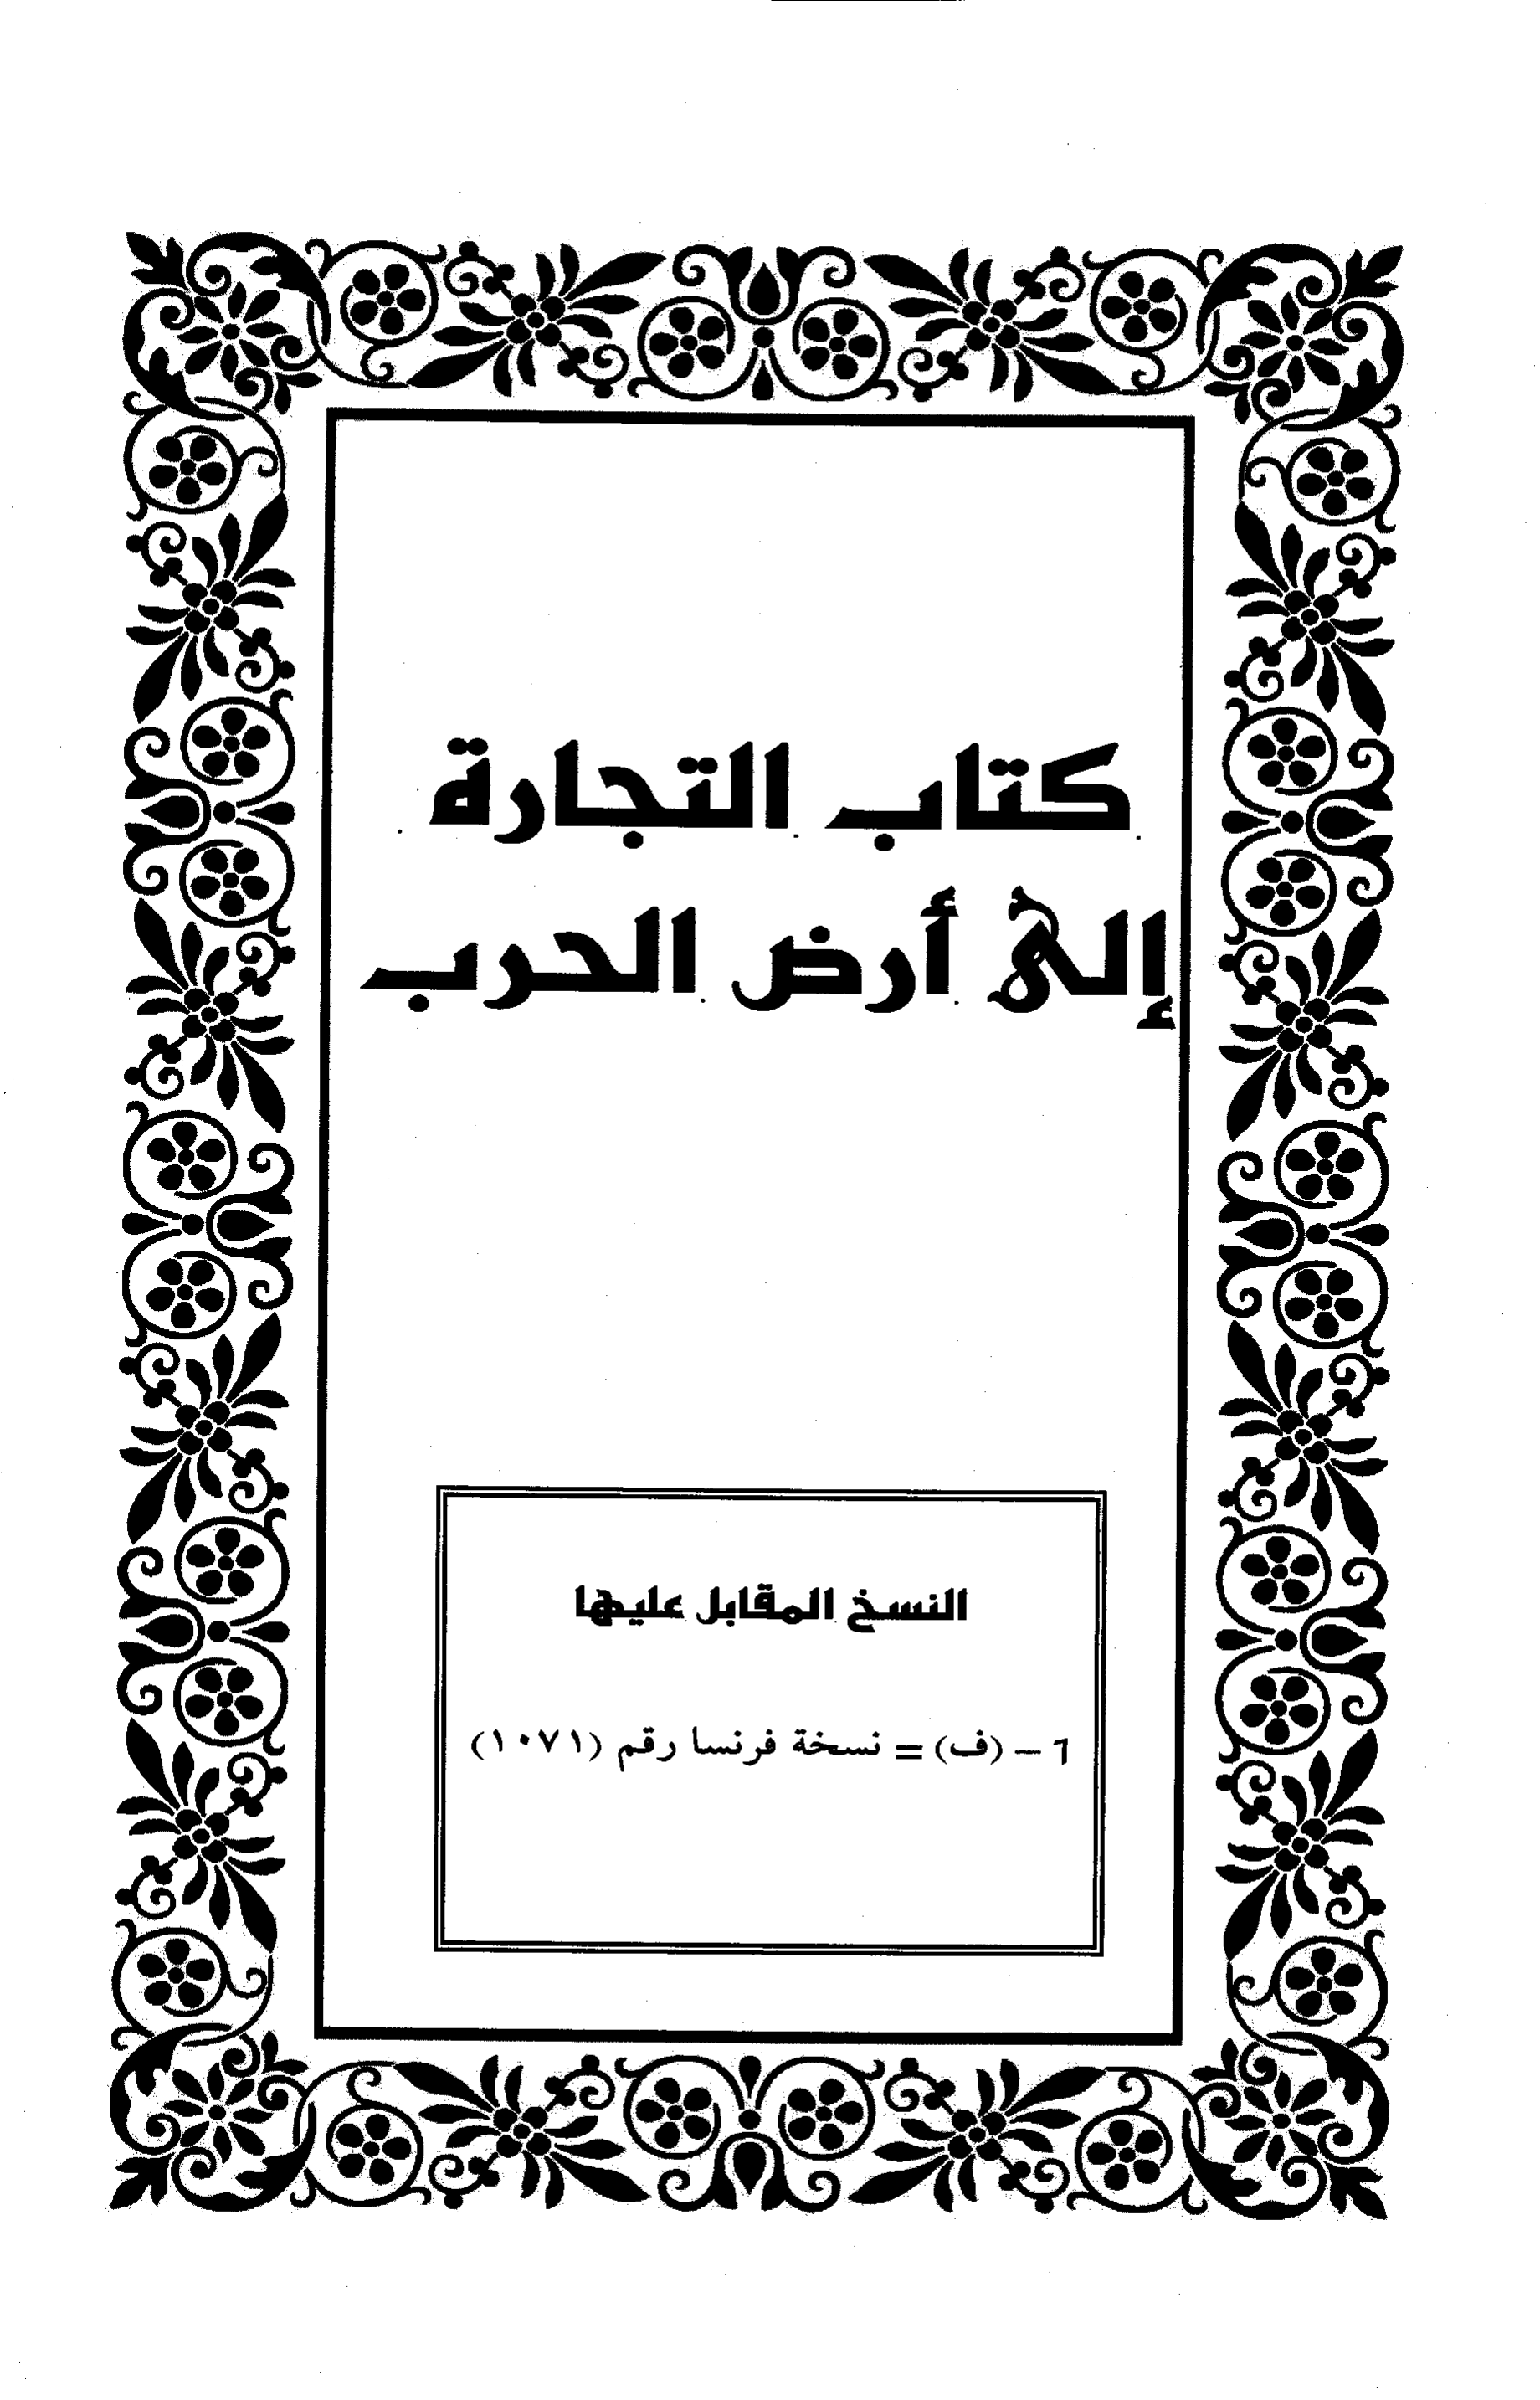 كتاب التجارة
إلى أرض الحرب
النسخ المقابل عليها
٦ – (ف) = نسخة فرنسا رقم (١٠٧١)